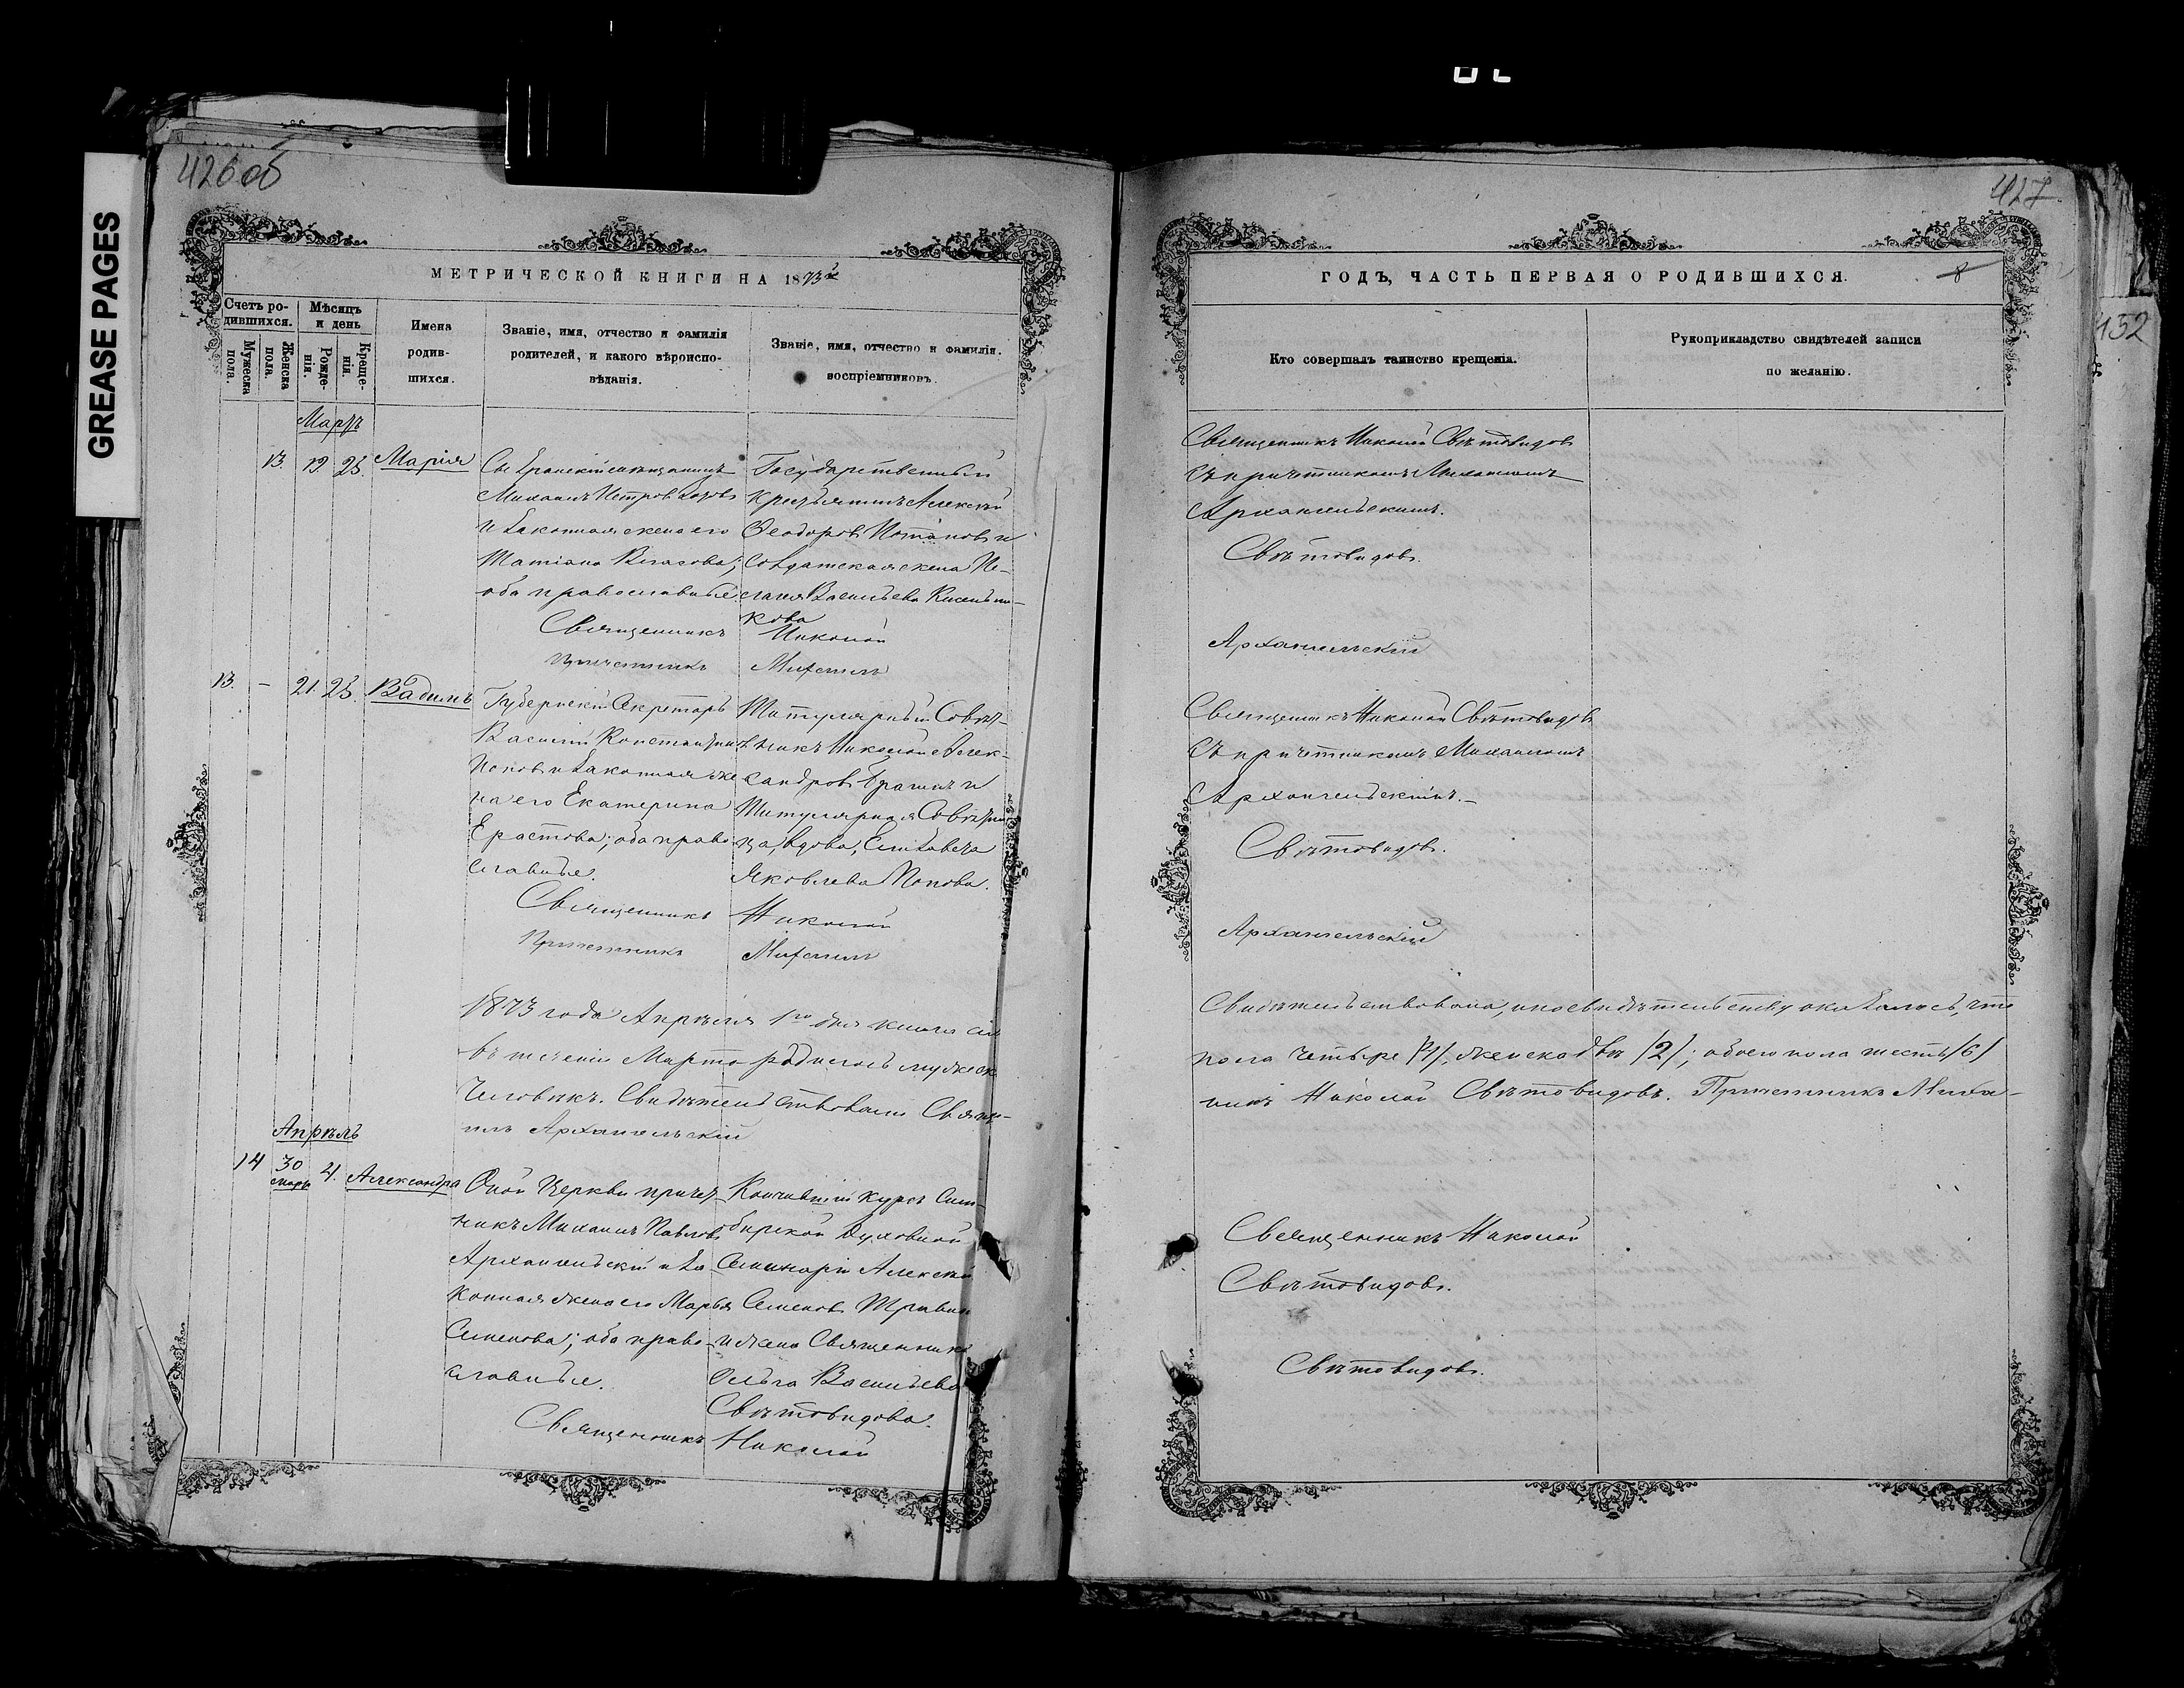 GREASE PAGES
426 об
МЕТРИЧЕСКОЙ КНИГИ НА 1873й
Счетъ родившихся.
Мужеска пола.
Женска пола.
Мѣсяцъ и день
Рожденія.
Крещенія.
Имена родившихся.
Званіе, имя, отчество и фамилія
родителей, и какого вѣроиспо-
вѣданія.
Званіе, имя, отчество и фамилія.
воспріемниковъ.
Мартъ
13. 19. 25. Марія
мѣщанинъ
Михаилъ Петровъ
и законная жена его
Татіана Власова;
оба православные.
Государственный
крестьянинъ Алексѣй
Ѳеодоровъ Потаповъ и
солдатская жена Пе-
лагея Васильева
кова
Священникъ Николай
Причетникъ Михаилъ
13. - 21. 25. Вадимъ
Губернскій Секретарь
Василій Константин
Поповъ и законная же
на его Екатерина
Ерастова; оба право
славные.
Титулярный Совѣт-
никъ Николай Алек-
сандровъ и
Титулярная Совѣтни
ца, вдова, Елизавета
Яковлева Попова.
Священникъ Николай
Причетникъ Михаилъ
1873 года Апрѣля 1го дня книга сія
въ теченіи Марта родилось мужеск
человѣкъ. Свидѣтельствовали Священ-
илъ Архангельскій
Апрѣль
14 30 Март 4. Александра
Оной Церкви причет
никъ Михаилъ Павловъ
Архангельскій и за
конная жена его Марья
Семенова; оба право
славные.
Кончившій курсъ Сим-
бирской Духовной
Семинаріи Алексѣй
Семеновъ Травин
и жена Священника
Ольга Васильева
Свѣтовидова.
Священникъ Николай
427
ГОДЪ, ЧАСТЬ ПЕРВАЯ О РОДИВШИХСЯ.
8
152
Кто совершалъ таинство крещенія.
Рукоприкладство свидѣтелей записи
по желанію.
Священникъ Николай Свѣтовидовъ
съ причетникомъ Михаиломъ
Архангельскимъ.
Свѣтовидовъ.
Архангельскій
Священникъ Николай Свѣтовидовъ
съ причетникомъ Михаиломъ
Архангельскимъ.-
Свѣтовидовъ.
Архангельскій
Свидѣтельствована, и по свидѣтельству оказалось, что
пола четыре /4/, женска двѣ /2/; обоего пола шесть /6/
никъ Николай Свѣтовидовъ. Причетникъ Миха-
Священникъ Николай
Свѣтовидовъ.
Свѣтовидовъ.